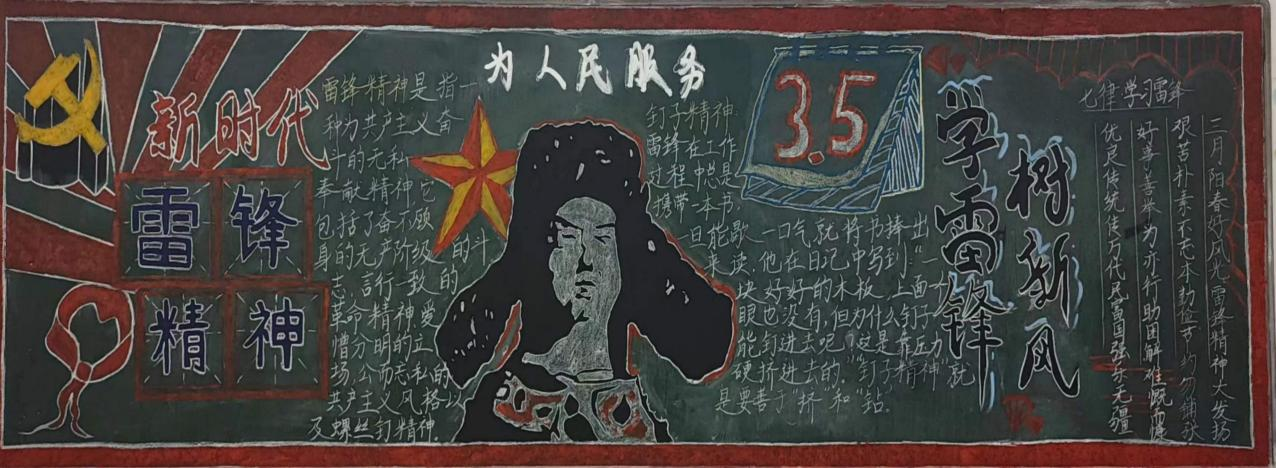 为人民服务
新时代
雷锋
精神
雷锋精神是指一
种为共产主义奋
斗的无私
奉献精神它
包括了奋不顾
身的无产阶级的斗
志言行一致的
革命精神爱
憎分明的立
场公而忘私的
共产主义风格以
及螺丝钉精神.
钉子精神
雷锋在工作
过程中总是
携带一本书
一旦能歇一口气就将书捧出
来读.他在日记中写到:"一
块好好的木板,上面一个
眼也没有,但为什么钉子
能钉进去呢?"这是靠压力
硬挤进去的."钉子精神"就
是要善于"挤"和"钻.
3.5
学雷锋
树新风
七律学习雷锋
三月阳春好风光雷锋精神大发扬
艰苦朴素不忘本勤俭节约勿铺张
好事善举为亦行助困解难慨而慷
优良传统传万代民富国强乐无疆